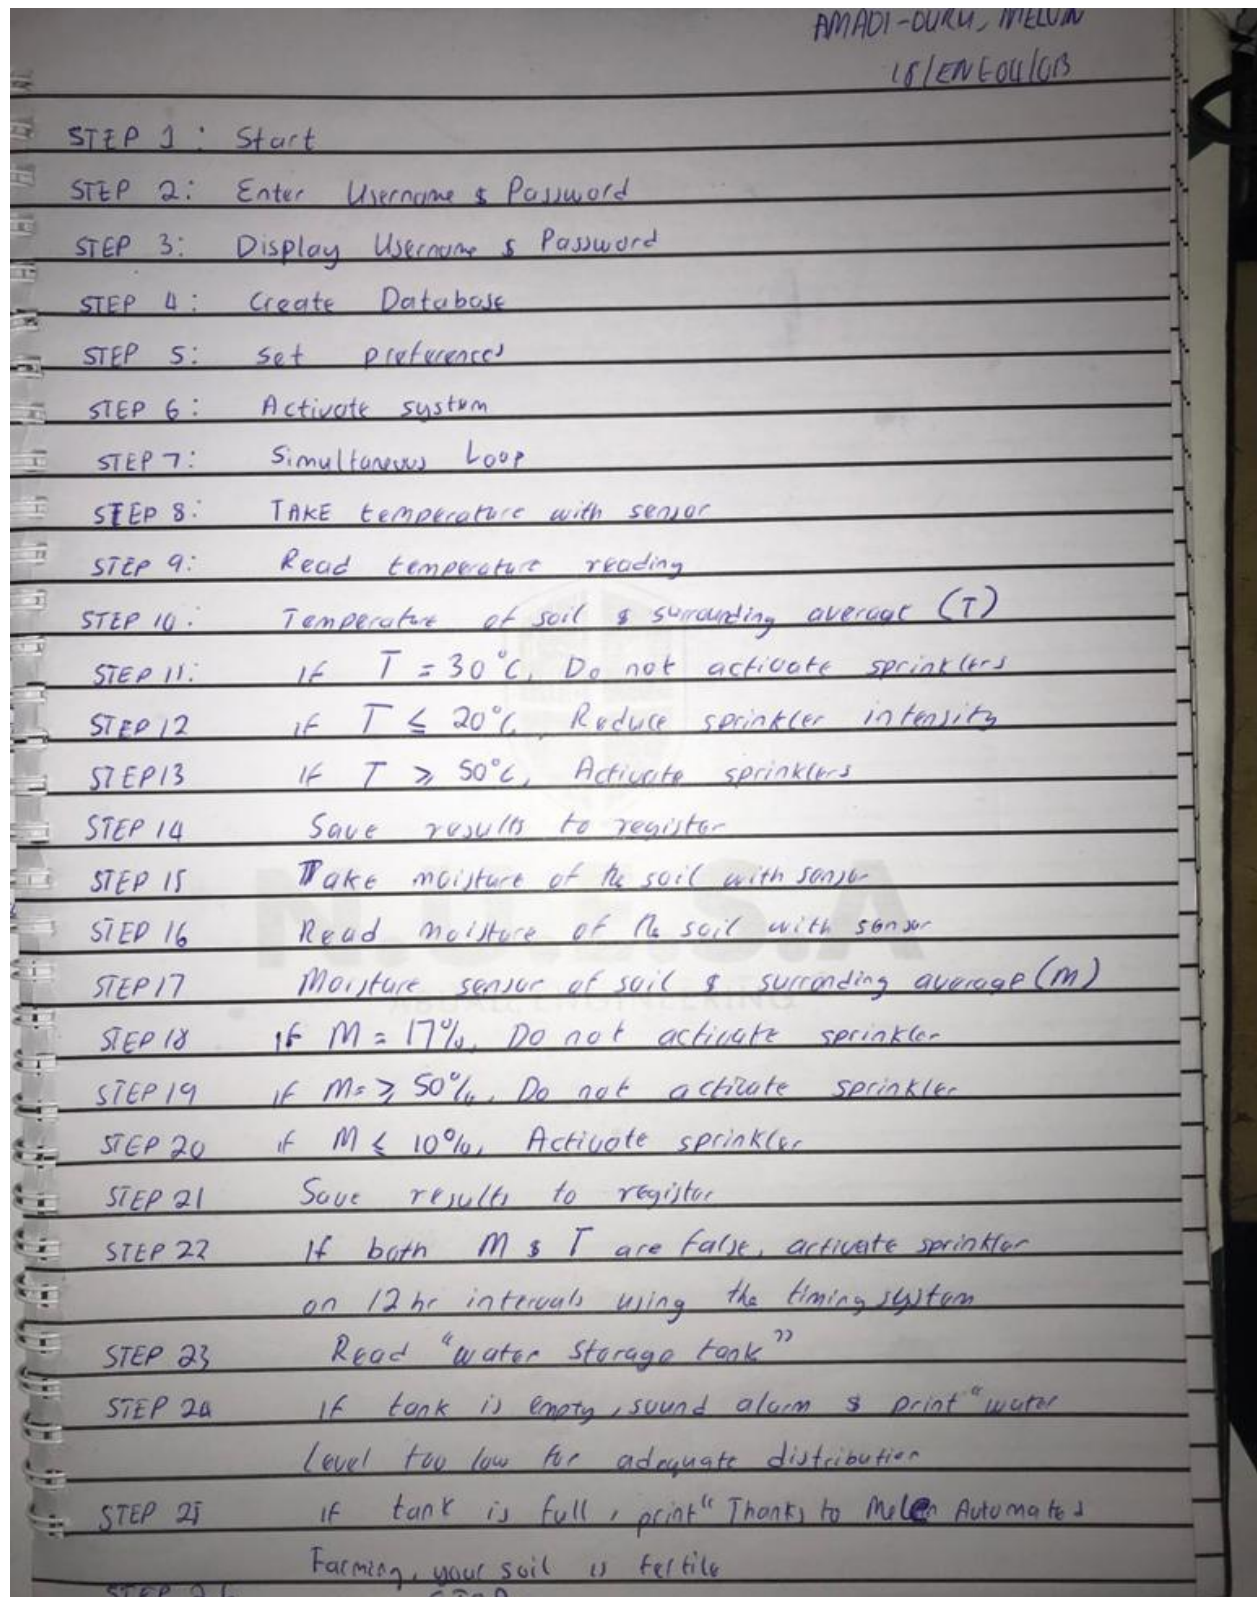 AMADI-DURU, MELVIN
18/ENG04/013
STEP 1: Start
STEP 2: Enter Username & Password
STEP 3: Display Username & Password
STEP 4: Create Database
STEP 5: Set preferences
STEP 6: Activate system
STEP 7: Simultaneous Loop
STEP 8: TAKE temperature with sensor
STEP 9: Read temperature reading
STEP 10: Temperature of soil & surrounding average (T)
STEP 11: If T = 30°C, Do not activate sprinklers
STEP 12 if T ≤ 20°C, Reduce sprinkler intensity
STEP13 If T ≥ 50°C, Activate sprinklers
STEP 14 Save results to register
STEP 15 Take moisture of the soil with sensor
STEP 16 Read moisture of the soil with sensor
STEP17 Moisture sensor of soil & surronding average (M)
STEP 18 If M = 17%, Do not activate sprinkler
STEP 19 if M= ≥ 50%, Do not activate sprinkler
STEP 20 if M ≤ 10%, Activate sprinkler
STEP 21 Save results to register
STEP 22 If both M & T are false, activate sprinkler
on 12 hr intervals using the timing system
STEP 23 Read "water Storage tank"
STEP 24 If tank is empty, sound alarm & print "water
Level too low for adequate distribution
STEP 25 If tank is full, print "Thanks to Melen Automated
Farming, your soil is fertile
STEP 26 STOP
N.U.E.S.A
ABUAD ENGINEERING